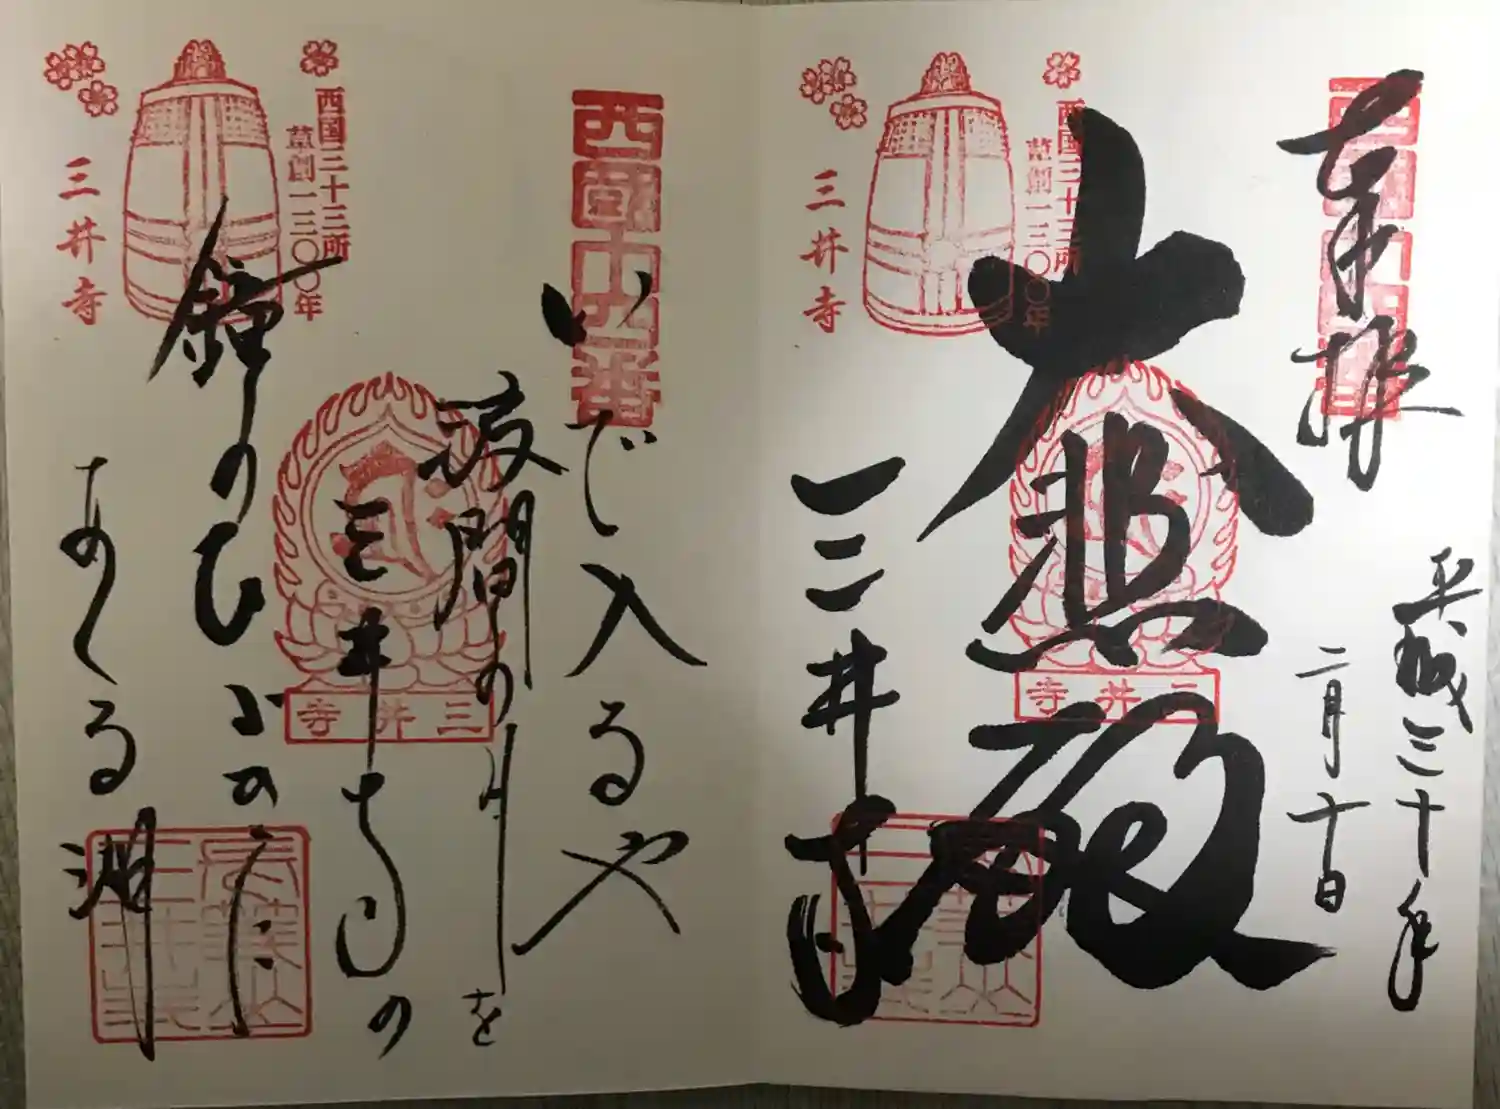 奉拝
西国十四番
平成三十年
二月十日
大悲殿
三井寺
西国三十三所
草創一三〇〇年
三井寺
三井寺
西国十四番
いで入るや
波間の月を
三井寺の
鐘のひびきに
あくる湖
西国三十三所
草創一三〇〇年
三井寺
三井寺